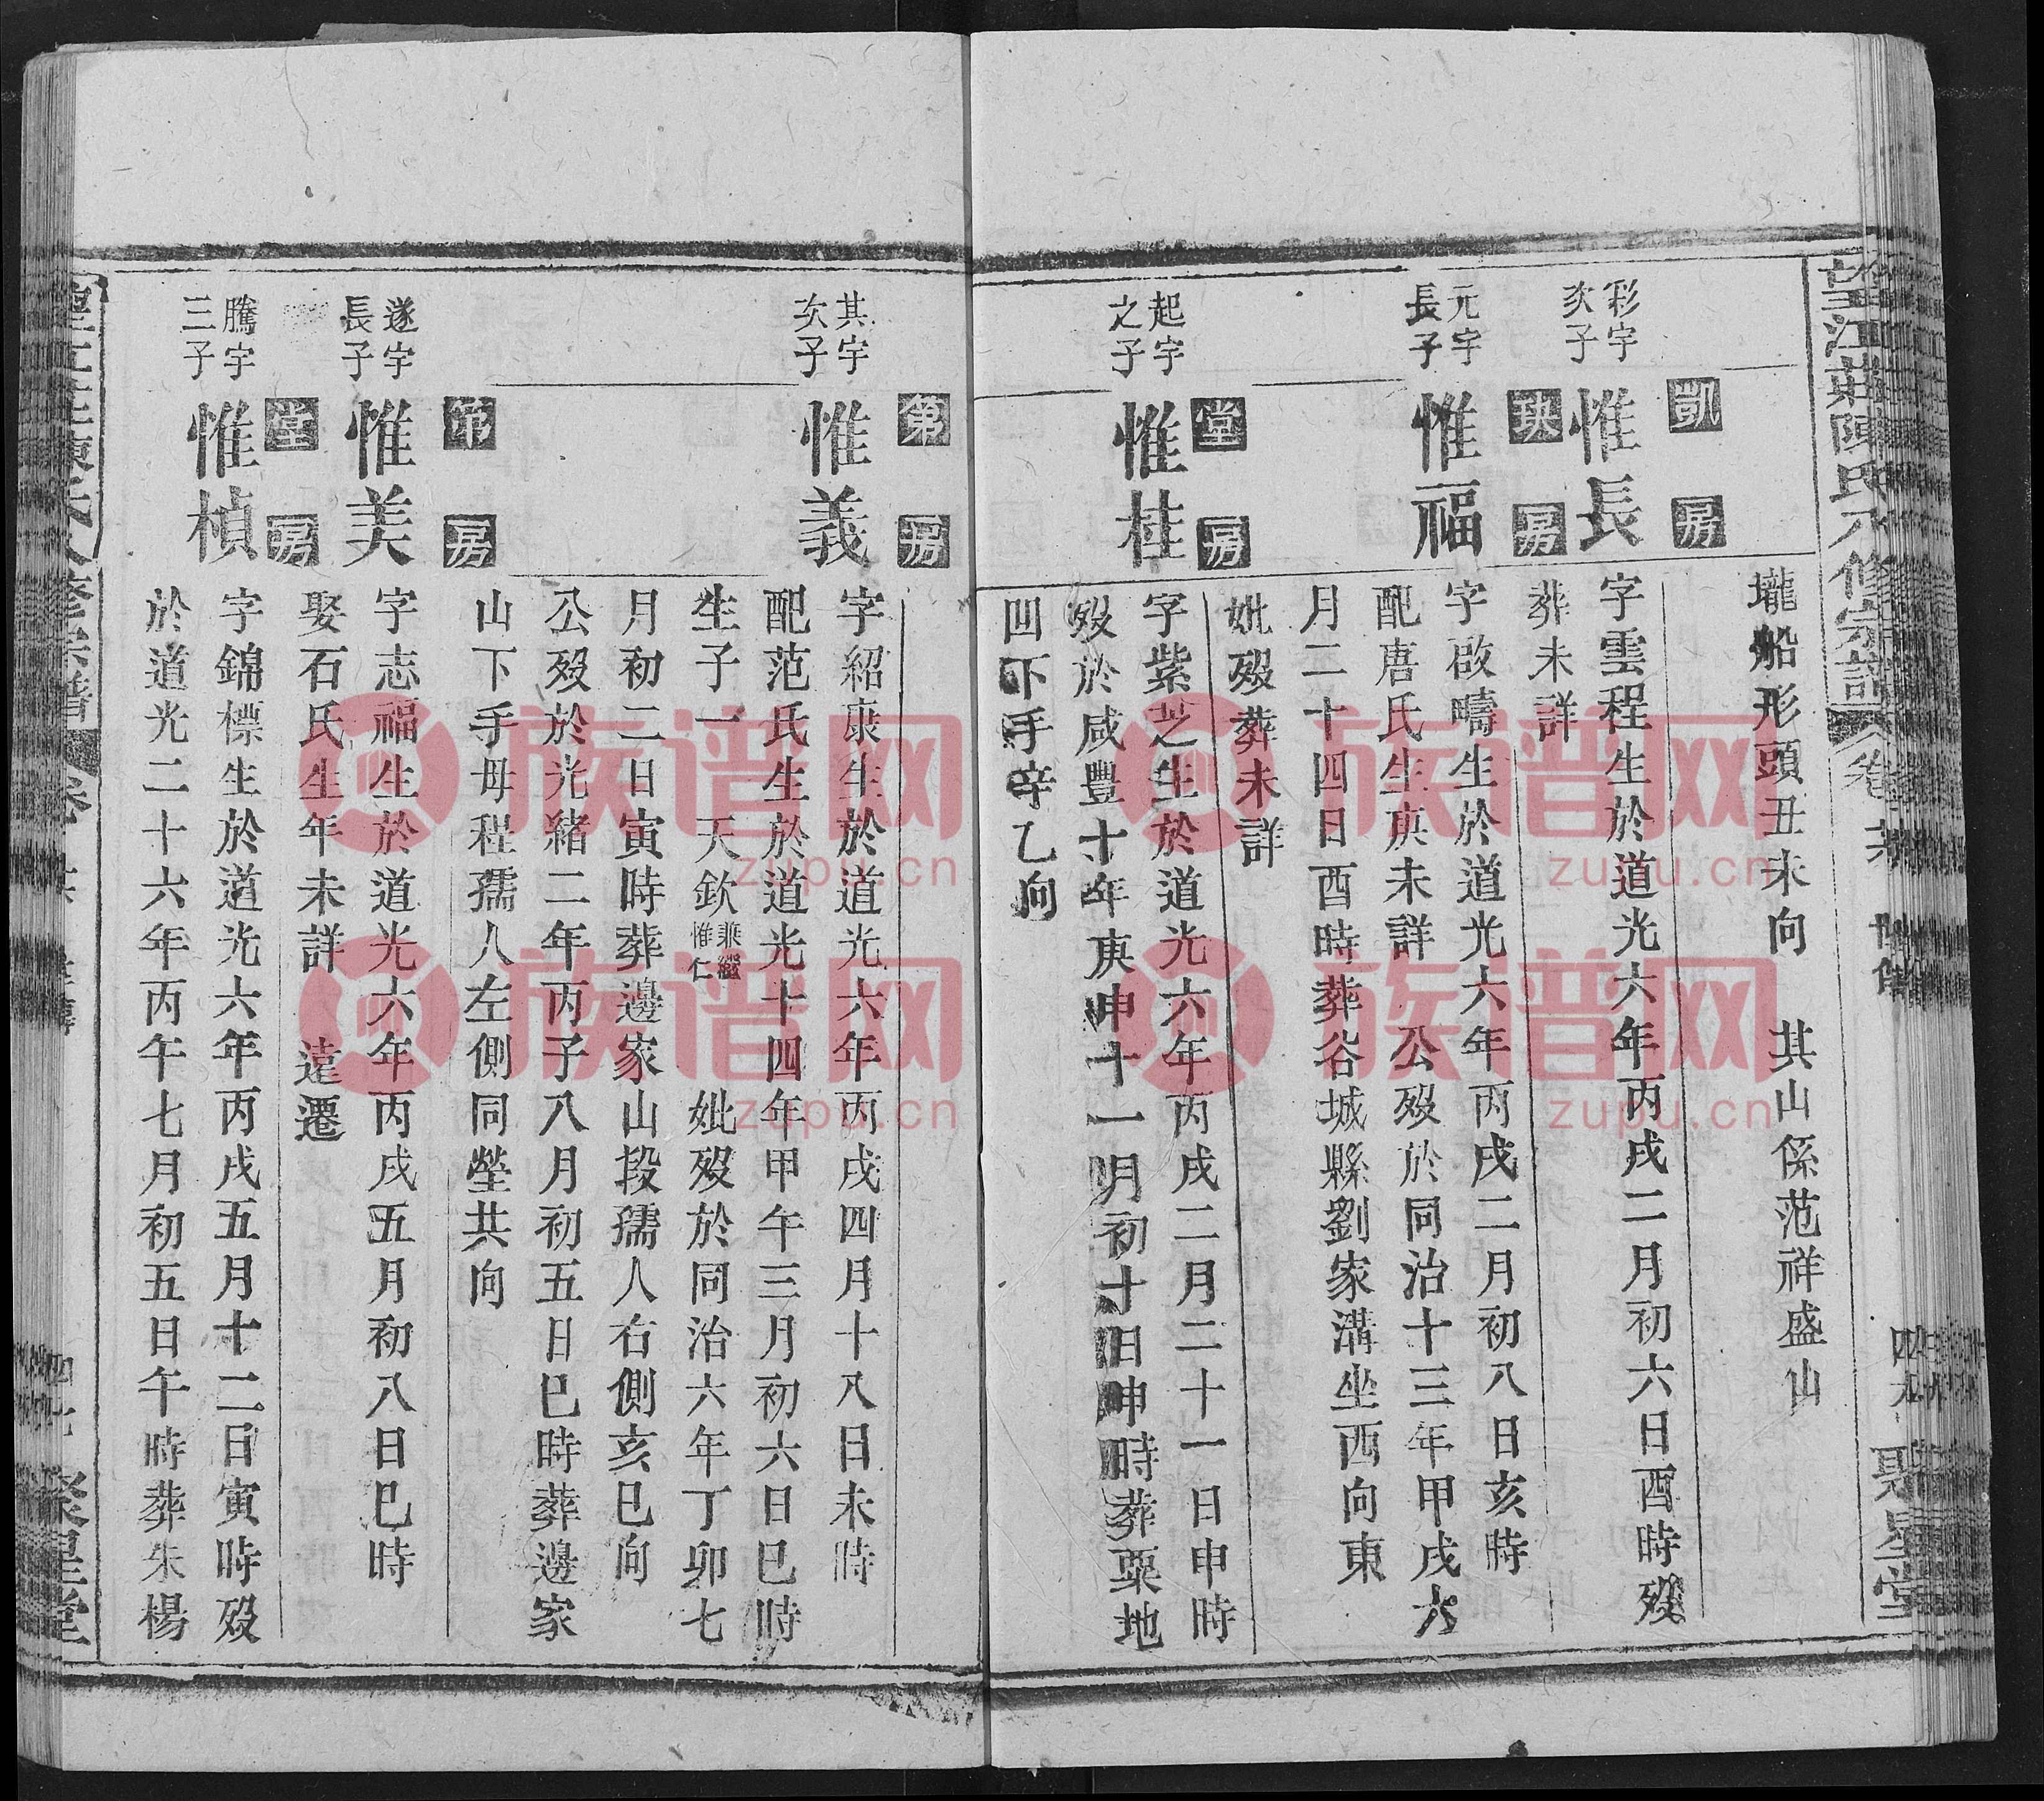 望江莊陳氏八修宗譜
聚星堂
壠船形頭丑未向 其山係范祥盛山
凱房
彩宇
次子
惟長
字雲程生於道光六年丙戌二月初六日酉時歿
葬未詳
玦房
元宇
長子
惟福
字啟疇生於道光六年丙戌二月初八日亥時
配唐氏生庚未詳 公歿於同治十三年甲戌六
月二十四日酉時葬谷城縣劉家溝坐西向東
妣歿葬未詳
堂房
起宇
之子
惟桂
字紫芝生於道光六年丙戌二月二十一日申時
歿於咸豐十年庚申十一月初十日申時葬粟地
凹下手辛乙向
第房
其宇
次子
惟義
字紹康生於道光六年丙戌四月十八日未時
配范氏生於道光十四年甲午三月初六日巳時
生子一 天欽 兼繼
惟仁
妣歿於同治六年丁卯七
月初二日寅時葬邊家山段孺人右側亥巳向
公歿於光緒二年丙子八月初五日巳時葬邊家
山下手母程孺人左側同塋共向
房
遂宇
長子
惟美
字志福生於道光六年丙戌五月初八日巳時
娶石氏生年未詳 遠遷
堂房
騰宇
三子
惟楨
字錦標生於道光六年丙戌五月十二日寅時歿
於道光二十六年丙午七月初五日午時葬朱楊
聚星堂
族谱网
zupu.cn
族谱网
zupu.cn
族谱网
zupu.cn
族谱网
zupu.cn